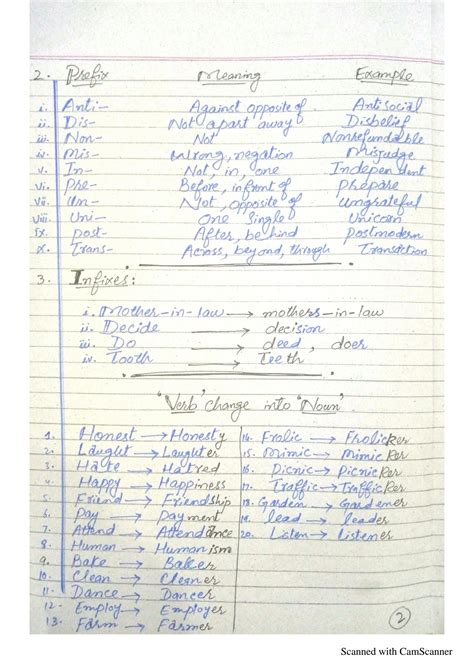 2. Prefix Meaning Example
i. Anti- Against opposite of Antisocial
ii. Dis- Not apart away Disbelief
iii. Non- Not Nonrefundable
iv. Mis- Wrong, negation Misjudge
v. In- Not, in, one Independent
vi. Pre- Before, in front of Prepare
vii. Un- Not, opposite of ungrateful
viii. Uni- One Single Unicorn
ix. post- After, behind Postmodern
x. Trans- Across, beyond, through Transaction
3. Infixes:
i. Mother-in-law → mothers-in-law
ii. Decide → decision
iii. Do → deed, doer
iv. Tooth → Teeth
"Verb" change into "Noun".
1. Honest → Honesty 14. Frolic → Frolicker
2. Laught → Laughter 15. Mimic → Mimicker
3. Hate → Hatred 16. Picnic → Picnicker
4. Happy → Happiness 17. Traffic → Trafficker
5. Friend → Friendship 18. Garden → Gardener
6. Pay → Payment 19. lead → leader
7. Attend → Attendance 20. Listen → Listener
8. Human → Humanism
9. Bake → Baker
10. Clean → Cleaner
11. Dance → Dancer
12. Employ → Employer
13. Farm → Farmer
2
Scanned with CamScanner